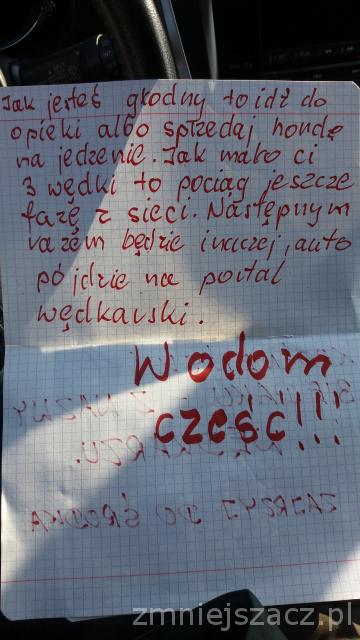 Jak jesteś głodny to idź do
opieki albo sprzedaj hondę
na jedzenie. Jak mało ci
3 wędki to pociąg jeszcze
fazę z sieci. Następnym
razem będzie inaczej, auto
pójdzie na portal
wędkarski.
Wodom
cześć!!!
ZAJRZYJ DO ŚRODKA
zmniejszacz.pl